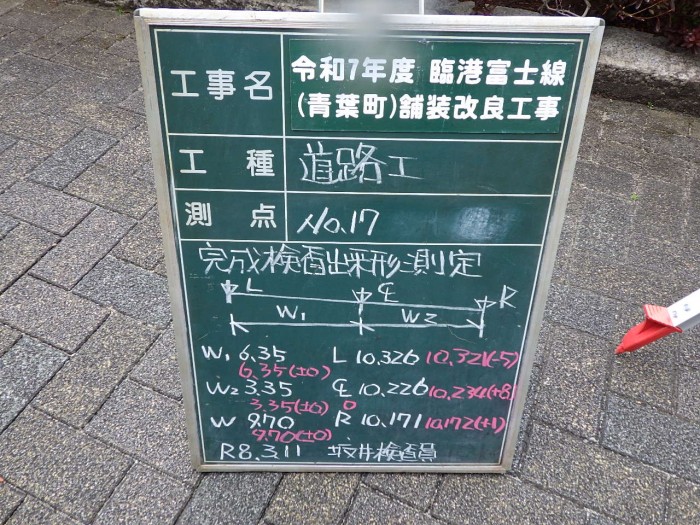 工事名 令和7年度 臨港富士線
(青葉町)舗装改良工事
工種 道路工
測点 No.17
完成検査出来形測定
L ℄ R
W₁ W₂
W₁ 6.35 L 10.326 10.321(-5)
6.35(±0)
W₂ 3.35 ℄ 10.226 10.234(+8)
3.35(±0) 0
W 9.70 R 10.171 10.172(+1)
9.70(±0)
R8.3.11 坂井検査員